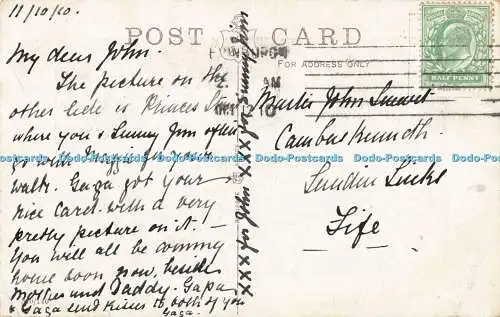 11/10/10.
POST CARD
FOR ADDRESS ONLY
HALF PENNY
My dear John.
The picture on the
other side is Princes St.
where you & Sunny Jim often
go with Maggie for your
walk. Gaga got your
nice card with a very
pretty picture on it —
You will all be coming
home soon now, beside
Mother and Daddy. Gapa
& Gaga send kisses to both of you
Gaga.
for John XXX
XXX for Sunny Jim
Master John
Cambuskenneth.
Lundin Links
Fife
Dodo-Postcards Dodo-Postcards Dodo-Postcards Dodo-Postcards Dodo-Postcards Dodo-Postcards